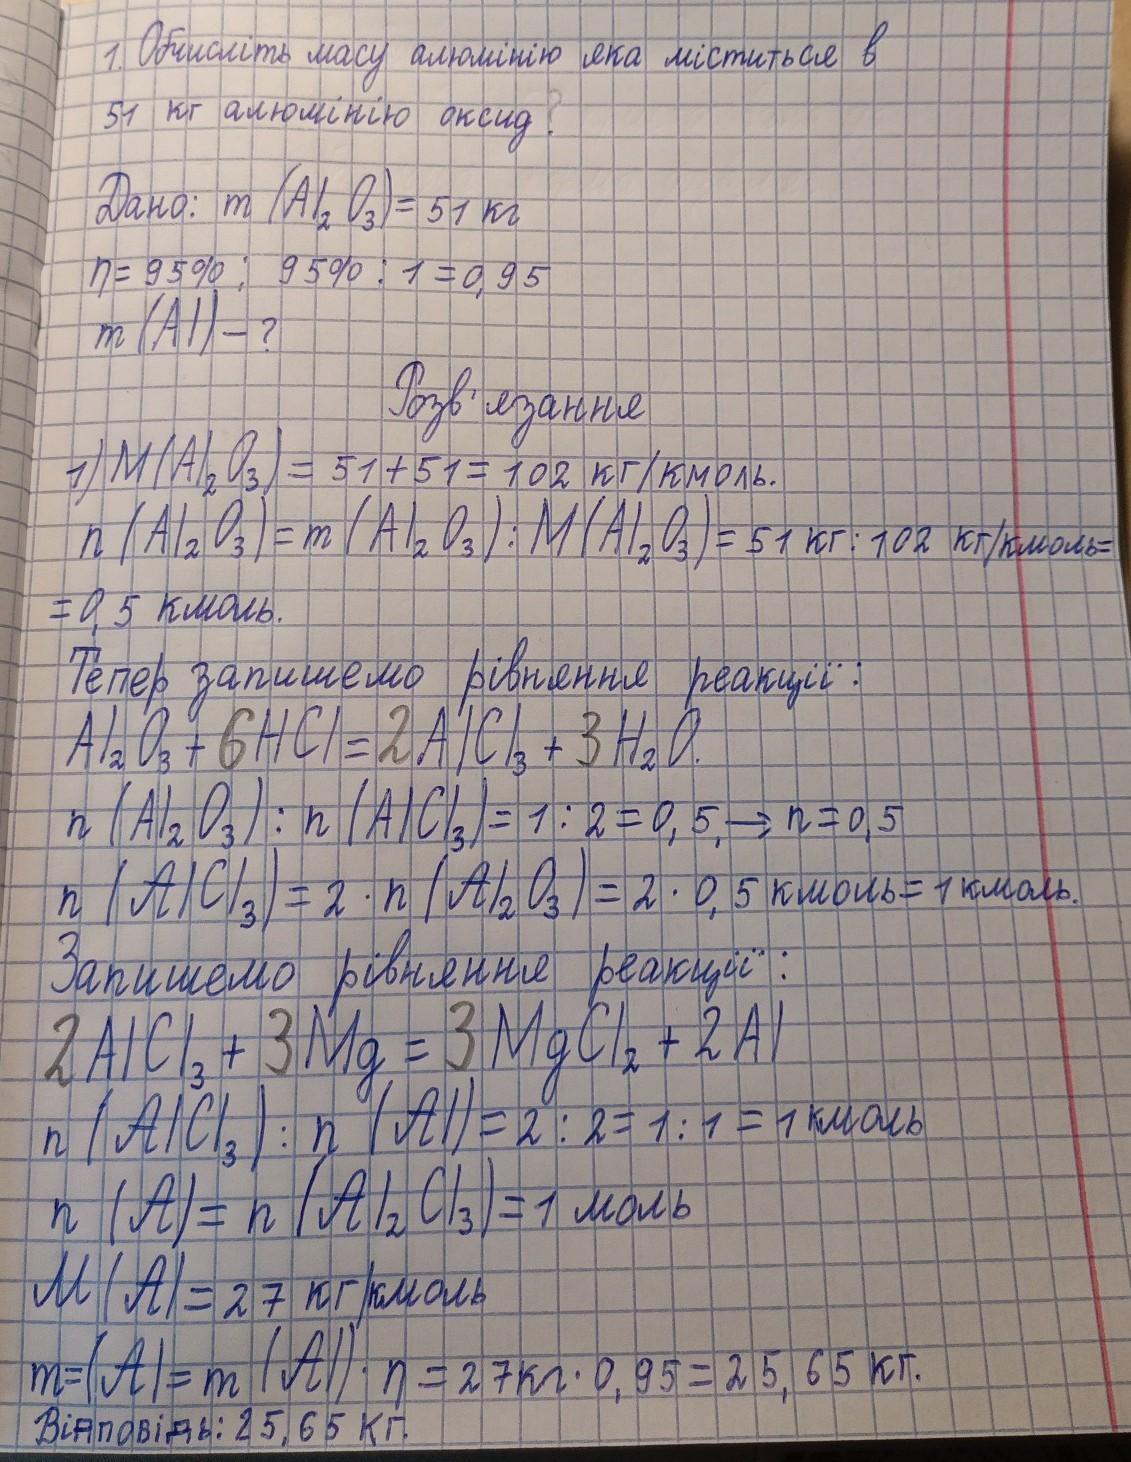 1. Обчисліть масу алюмінію яка міститься в
51 кг алюмінію оксид?
Дано: m (Al₂O₃) = 51 кг
η = 95% ; 95% : 1 = 0,95
m (Al) – ?
Розв'язання
1) M(Al₂O₃) = 51 + 51 = 102 кг/кмоль.
n (Al₂O₃) = m (Al₂O₃) : M(Al₂O₃) = 51 кг : 102 кг/кмоль =
= 0,5 кмоль.
Тепер запишемо рівняння реакції:
Al₂O₃ + 6HCl = 2AlCl₃ + 3H₂O.
n (Al₂O₃) : n (AlCl₃) = 1 : 2 = 0,5, → n = 0,5
n (AlCl₃) = 2 · n (Al₂O₃) = 2 · 0,5 кмоль = 1 кмоль.
Запишемо рівняння реакції:
2AlCl₃ + 3Mg = 3MgCl₂ + 2Al
n (AlCl₃) : n (Al) = 2 : 2 = 1 : 1 = 1 кмоль
n (Al) = n (Al₂Cl₃) = 1 моль
M (Al) = 27 кг/кмоль
m = (Al) = m (Al) · η = 27 кг · 0,95 = 25,65 кг.
Відповідь: 25,65 кг.